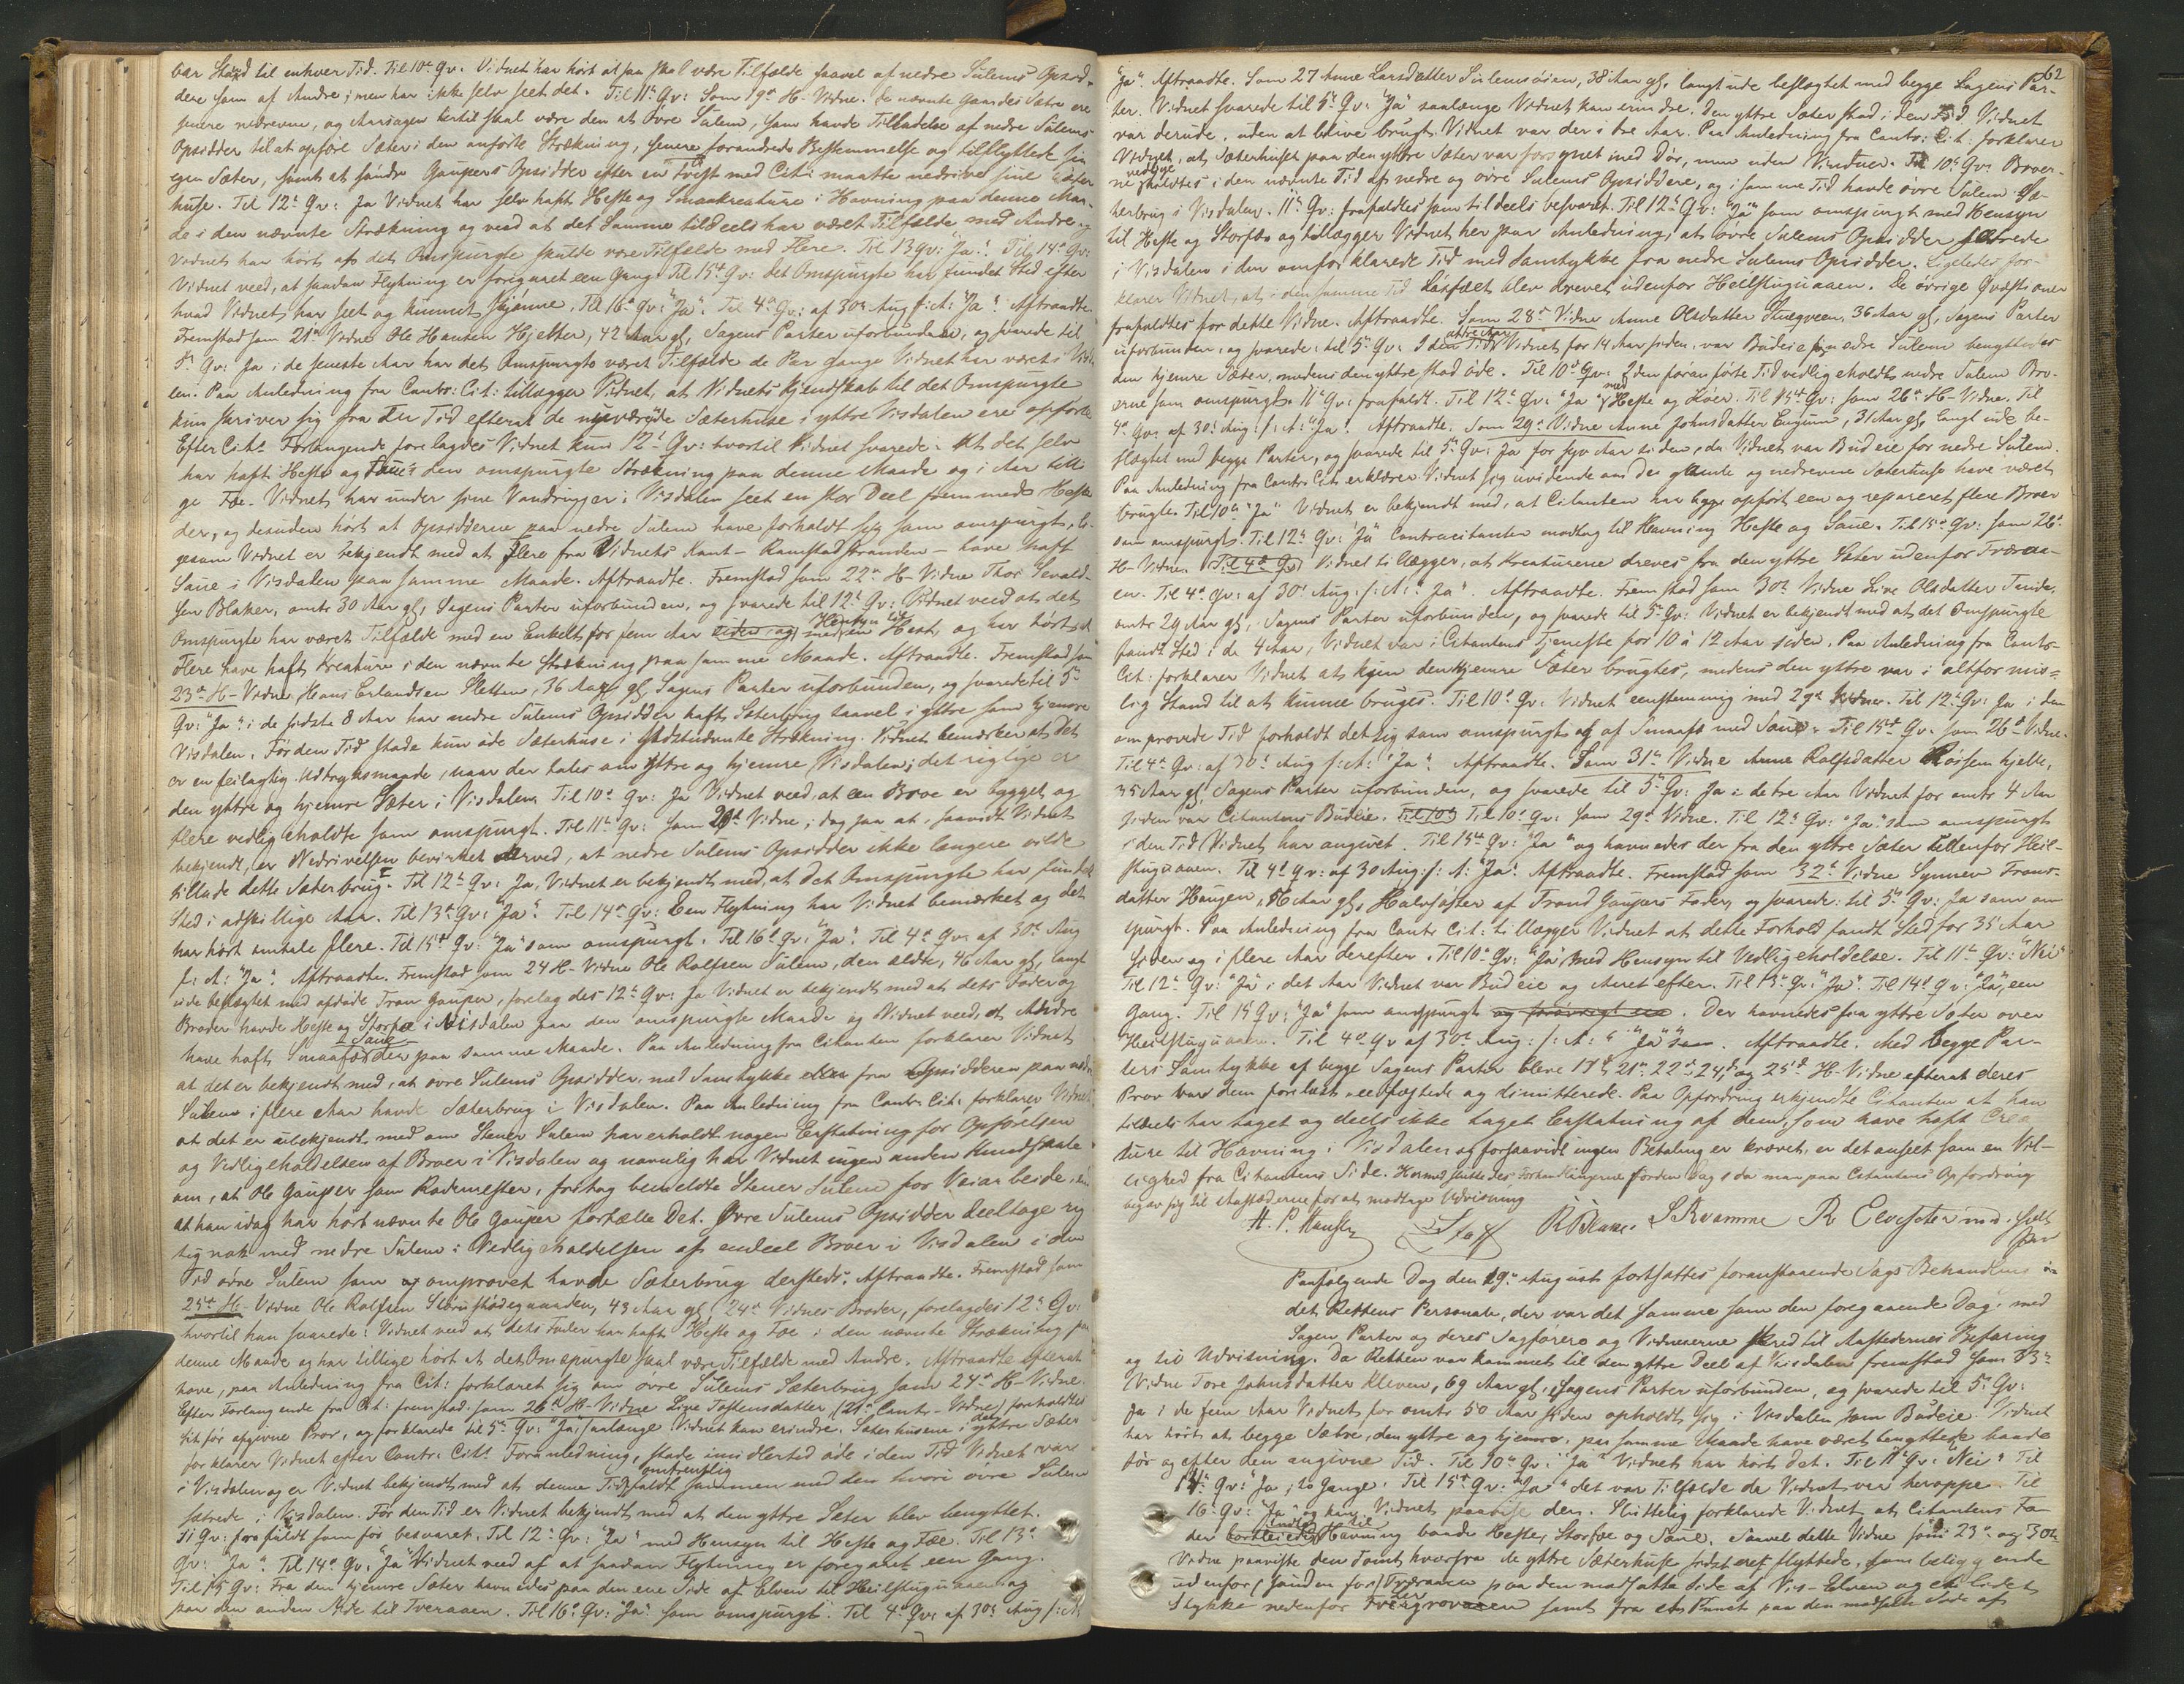 bar Stand til enhver Tid. Til 10de Qv. Vidnet har hørt at saa skal være Tilfælde saavel af nedre Sulems Opsid-
dere som af Andre; men har ikke selv seet det. Til 11te Qv: Som 19de H-Vidne. De nævnte Gaardes Sætre ere
senere nedrevne, og Aarsagen hertil skal være den at øvre Sulem, som havde Tilladelse af nedre Sulems
Opsidder til at opføre Sæter i den anførte Strækning, senere forandrede Bestemmelse og tilflyttede sin
egen Sæter, samt at søndre Gaupers Opsidder efter en Tvist med Cit: maatte nedrive sine Sæter
huse. Til 12te Qv: Ja Vidnet har selv havt Heste og Smaakreature i Havning paa denne Maa-
de i den nævnte Strækning og veed at det Samme tildeels har været Tilfælde med Andre,
Vidnet har hørt at det Omspurgte skulde være Tilfælde med Flere. Til 13 Qv: "Ja". Til 14de Qv:
Vidnet veed, at saadan Flytning er foregaaet een Gang. Til 15de Qv: Det Omspurgte har fundet Sted efter
hvad Vidnet har seet og kunnet skjønne. Til 16de Qv: "Ja". Til 4de Qv: af 30te Aug f: A: "Ja". Aftraadte.
Fremstod som 21de Vidne Ole Hansen Hjeltar, 42 Aar gl, Sagens Parter uforbunden, og svarede til
5te Qv: Ja i de seneste Aar har det Omspurgte været Tilfælde de Par Gange Vidnet har været i Visda-
len. Paa Anledning fra Contra Cit: tillægger Vidnet, at Vidnets Kjendskab til det Omspurgte
kun skriver sig fra den Tid efterat de nuværende Sæterhuse i yttre Visdalen ere opførte.
Efter Cits Forlangende forelagdes Vidnet kun 12te Qv: hvortil Vidnet svarede: At det selv
har havt Heste og Saue i den omspurgte Strækning paa denne Maade og i Aar tilli-
ge Fæ. Vidnet har under sine Vandringer i Visdalen seet en stor Deel fremmede Heste
der, og desuden hørt at Opsidderne paa nedre Sulem have forholdt sig som omspurgt, li-
gesom Vidnet er bekjendt med at Flere fra Vidnets Kant - Ramstadstranden - have havt
Saue i Visdalen paa samme Maade. Aftraadte. Fremstod som 22de H-Vidne Thor Sevald-
sen Blaker, omtr 30 Aar gl, Sagens Parter uforbunden, og svarede til 12te Qv: Vidnet veed at det
Omspurgte har været Tilfælde med en Enkelt for fem Aar siden, og med Hensyn til en Hest, og har hørt at
Flere have havt Kreature i den nævnte Strækning paa samme Maade. Aftraadte. Fremstod som
23de H-Vidne Hans Erlandsen Sletten, 36 Aar gl, Sagens Parter uforbunden, og svarede til 5te
Qv: "Ja" i de sidste 8 Aar har nedre Sulems Opsidder havt Sæterbrug saavel i yttre som hjemre
Visdalen. Før den Tid stode kun øde Sæterhuse i sidstnævnte Strækning. Vidnet bemærker at det
er en feilagtig Udtryksmaade, naar der tales om yttre og hjemre Visdalen; det rigtige er
den yttre og hjemre Sæter i Visdalen. Til 10de Qv: Ja Vidnet veed, at een Broe er bygget og
flere vedligeholdte som omspurgt. Til 11te Qv: som 20de Vidne; dog saa at, saavidt Vidnet
bekjendt, er Nedrivelsen bevirket derved, at nedre Sulems Opsidder ikke længere vilde
tillade dette Sæterbrug. Til 12te Qv: Ja, Vidnet er bekjendt med, at det Omspurgte har fundet
Sted i adskillige Aar. Til 13de Qv: "Ja". Til 14de Qv: Een Flytning har Vidnet bemærket og det
har hørt omtale flere. Til 15de Qv: "Ja" som omspurgt. Til 16de Qv: "Ja". Til 4de Qv: af 30te Aug
f: A: "Ja". Aftraadte. Fremstod som 24 H-Vidne Ole Rolfsen Sulem, den ældre, 46 Aar gl, langt
ude beslægtet med afdøde Tron Gauper, forelagdes 12te Qv: Ja Vidnet er bekjendt med at dets Fader og
Broder havde Heste og Storfæ i Visdalen paa den omspurgte Maade og Vidnet veed, at Andre
have havt Smaafæ & Saue der paa samme Maade. Paa Anledning fra Citanten forklarer Vidnet
at det er bekjendt med, at øvre Sulems Opsidder, med Samtykke eller fra Opsidderen paa nedre
Sulem i flere Aar havde Sæterbrug i Visdalen. Paa Anledning fra Contra Cit: forklarer Vidnet
at det er ubekjendt med om Stener Sulem har erholdt nogen Erstatning for Opførelsen
og Vedligeholdelsen af Broer i Visdalen og navnlig har Vidnet ingen anden Kundskab
om, at Ole Gauper som Rodemester, fritog bemeldte Stener Sulem for Veiarbeide, end
at han idag har hørt nævnte Ole Gauper fortælle det. Øvre Sulems Opsidder deeltage rig
tignok med nedre Sulem i Vedligeholdelsen af endeel Broer i Visdalen i den
Tid øvre Sulem som og omprovet havde Sæterbrug dersteds. Aftraadte. Fremstod som
25de H-Vidne Ole Rolfsen Sleenstadeggaarden, 43 Aar gl, 24de Vidnes Broder, forelagdes 12te Qv:
hvortil han svarede: Vidnet veed at dets Fader har havt Heste og Fæ i den nævnte Strækning paa
denne Maade og har tillige hørt at det Omspurgte skal være Tilfælde med Andre. Aftraadte efterat
have, paa Anledning fra Cit: forklaret sig om øvre Sulems Sæterbrug som 24de H-Vidne.
Efter Forlangende fra Cit: fremstod som 26de H-Vidne Live Tostensdatter (21de Contra-Vidne) forholdtes
sit før afgivne Prov, og forklarede til 5te Qv: "Ja", saalænge Vidnet kan erindre. Sæterhusene i den yttre Sæter
forklarer Vidnet efter Contra Cits Foranledning, stode imidlertid øde i den Tid Vidnet var
i Visdalen og er Vidnet bekjendt med at denne Tid omtrentlig faldt sammen med den hvori øvre Sulem
sætrede i Visdalen. Før den Tid er Vidnet bekjendt med at den yttre Sæter blev benyttet.
11 Qv: frafaldt som før besvaret. Til 12te Qv: "Ja" med Hensyn til Heste og Fæe. Til 13de
Qv: "Ja". Til 14de Qv: "Ja" Vidnet veed af at saadan Flytning er foregaaet een Gang.
Til 15 Qv: Fra den hjemre Sæter havnedes paa den ene Side af Elven til Heilstuguaaen og
paa den anden Side til Tveraaen. Til 16de Qv: "Ja" som omspurgt. Til 4de Qv: af 30te Aug f: A:
62
"Ja". Aftraadte. Som 27 Anne Larsdatter Sulemsøien, 38 Aar gl, langt ude beslægtet med begge Sagens Par-
ter. Vidnet svarede til 5te Qv: "Ja" saalænge Vidnet kan erindre. Den yttre Sæter stod i den Tid Vidnet
var derude, uden at blive brugt. Vidnet var der i tre Aar. Paa Anledning fra Contra: Cit: forklarer
Vidnet, at Sæterhuset paa den yttre Sæter var forsynet med Dør, men uden Vinduer. Til 10de Qv: Broer-
ne vedligeholdtes i den nævnte Tid af nedre og øvre Sulems Opsiddere, og i samme Tid havde øvre Sulem Sæ-
terbrug i Visdalen. 11te Qv: frafaldtes som tildeels besvaret. Til 12te Qv: "Ja" som omspurgt med Hensyn
til Heste og Storfæ og tillægger Vidnet her paa Anledning, at øvre Sulems Opsidder sætrede
i Visdalen i den omforklarede Tid med Samtykke fra nedre Sulems Opsidder. Ligeledes for-
klarer Vidnet, at i den samme Tid Løsfæet blev drevet udenfor Heilstuguaaen. De øvrige Qvæstioner
frafaldtes for dette Vidne. Aftraadte. Som 28de Vidne Anne Olsdatter Stuegveen, 36 Aar gl, Sagens Parter
uforbunden, og svarede: til 5te Qv: I den Tid Vidnet, for 14 Aar siden, var Budeie for nedre Sulem benyttedes
den hjemre Sæter, medens den yttre stod øde. Til 10de Qv: I den foranførte Tid vedligeholdte nedre Sulem Bro-
erne som omspurgt. 11te Qv: frafaldt. Til 12te Qv: "Ja" med Heste og Kiøer. Til 15de Qv: som 26de H-Vidne. Til
4de Qv: af 30te Aug: f: A: "Ja". Aftraadte. Som 29de Vidne Anne Johnsdatter Eugum, 31 Aar gl, langt ude be-
slægtet med begge Parter, og svarede til 5te Qv: Ja for syv Aar siden, da Vidnet var Budeie for nedre Sulem.
Paa Anledning fra Contra Cit: erklærer Vidnet sig uvidende om de gamle og nedrevne Sæterhuse have været
brugte. Til 10de "Ja" Vidnet er bekjendt med, at Citanten har opført een og repareret flere Broer
som omspurgt. Til 12te Qv: "Ja" Contracitanten modtog til Havning Heste og Saue. Til 15de Qv: som 26de
H-Vidne. Til 4de Qv: Vidnet tillægger, at Kreaturene dreves fra den yttre Sæter udenfor Tværaa-
en. Til 4de Qv: af 30te Aug: f: A: "Ja". Aftraadte. Fremstod som 30te Vidne Live Olsdatter Tande,
omtr 29 Aar gl, Sagens Parter uforbunden, og svarede til 5te Qv: Vidnet er bekjendt med at det Omspurgte
fandt Sted i de 4 Aar, Vidnet var i Citantens Tjeneste for 10 à 12 Aar siden. Paa Anledning fra Contra-
Cit: forklarer Vidnet at kun den hjemre Sæter brugtes, medens den yttre var i altfor mis-
lig Stand til at kunne bruges. Til 10de Qv: Vidnet eenstemmig med 29de Vidne. Til 12te Qv: Ja i den
omprovede Tid forholdt det sig som omspurgt og af Smaafæ med Saue. Til 15de Qv: som 26de Vidne.
Til 4de Qv: af 30te Aug f: A: "Ja". Aftraadte. Som 31te Vidne Anne Rolfsdatter Røisemhjelle,
35 Aar gl, Sagens Parter uforbunden, og svarede til 5te Qv: Ja i de tre Aar Vidnet for omtr 4 Aar
siden var Citantens Budeie. Til 10de Til 10de Qv: som 29de Vidne. Til 12te Qv: "Ja" som omspurgt
i den Tid Vidnet har angivet. Til 15de Qv: "Ja" og havnedes der fra den yttre Sæter udenfor Heil-
stuguaaen. Til 4de Qv: af 30 Aug: f: A: "Ja". Aftraadte. Fremstod som 32te Vidne Synnev Trons-
datter Haugen, Aar gl, Halvsøster af Trond Gaupers Fader, og svarede: til 5te Qv: Ja som om
spurgt. Paa Anledning fra Contr Cit: tillægger Vidnet at dette Forhold fandt Sted for 35 Aar
siden og i flere Aar derefter. Til 10de Qv: "Ja" med Hensyn til Vedligeholdelse. Til 11te Qv: "Nei"
Til 12te Qv: "Ja" i det Aar Vidnet var Budeie og Aaret efter. Til 13de Qv: "Ja". Til 14de Qv: "Ja", een
Gang. Til 15 Qv: "Ja" som omspurgt og forøvrigt een. Der havnedes fra yttre Sæter over
Heilstuguaaen. Til 4de Qv af 30te Aug: f: A: "Ja" som. Aftraadte. Med begge Par-
ters Samtykke af begge Sagens Parter bleve 17de, 21de 22de 24de og 25de H-Vidne efterat deres
Prov var dem forelæst eedfæstede og dimitterede. Paa Opfordring erkjendte Citanten at han
tildeels har taget og deels ikke taget Erstatning af dem, som have havt Crea
ture til Havning i Visdalen og forsaavidt ingen Betaling er krævet, er det anseet som en Vel-
lighed fra Citantens Side. Hermed sluttedes Forhandlingerne for den Dag, da man paa Citantens Opfordring
begav sig til Aastederne for at modtage Udvisning
H. P. Hansen Staff R Blakar S Kvamme R Elvesæter m. p. Pen
Paafølgende Dag den 19de August fortsattes foranstaaende Sags Behandling i
det Rettens Personale, der var det samme som den foregaaende Dag, med
Sagens Parter og deres Sagførere og Vidnerne skred til Aastedernes Befaring
og til Udvisning. Da Retten var kommet til den yttre Deel af Visdalen fremstod som 33te
Vidne Tore Johnsdatter Kleven, 69 Aar gl, Sagens Parter uforbunden, og svarede til 5te Qv:
Ja i de fem Aar Vidnet for omtr 50 Aar siden opholdt sig i Visdalen som Budeie. Vidnet
har hørt at begge Sætre, den yttre og hjemre, paa samme Maade have været benyttede baade
før og efter den angivne Tid. Til 10de Qv: "Ja" Vidnet har hørt det. Til 11te Qv: "Nei" Til
14de Qv: "Ja", 2 Gange. Til 15de Qv: "Ja" det var Tilfælde da Vidnet var heroppe. Til
16de Qv: "Ja" og kan Vidnet paavise den. Sluttelig forklarede Vidnet at Citantens Fa-
der modtog til Havning baade Heste, Storfæ og Saue. Saavel dette Vidne som 23de og 30te
Vidne paaviste den Tomt hvorfra de yttre Sæterhuse sidst ere flyttede, som beliggende
udenfor (sønden for) Tværaaen paa den modsatte Side af Vis-Elven og et lidet
Stykke nedenfor samt fra et Punct paa den modsatte Side af